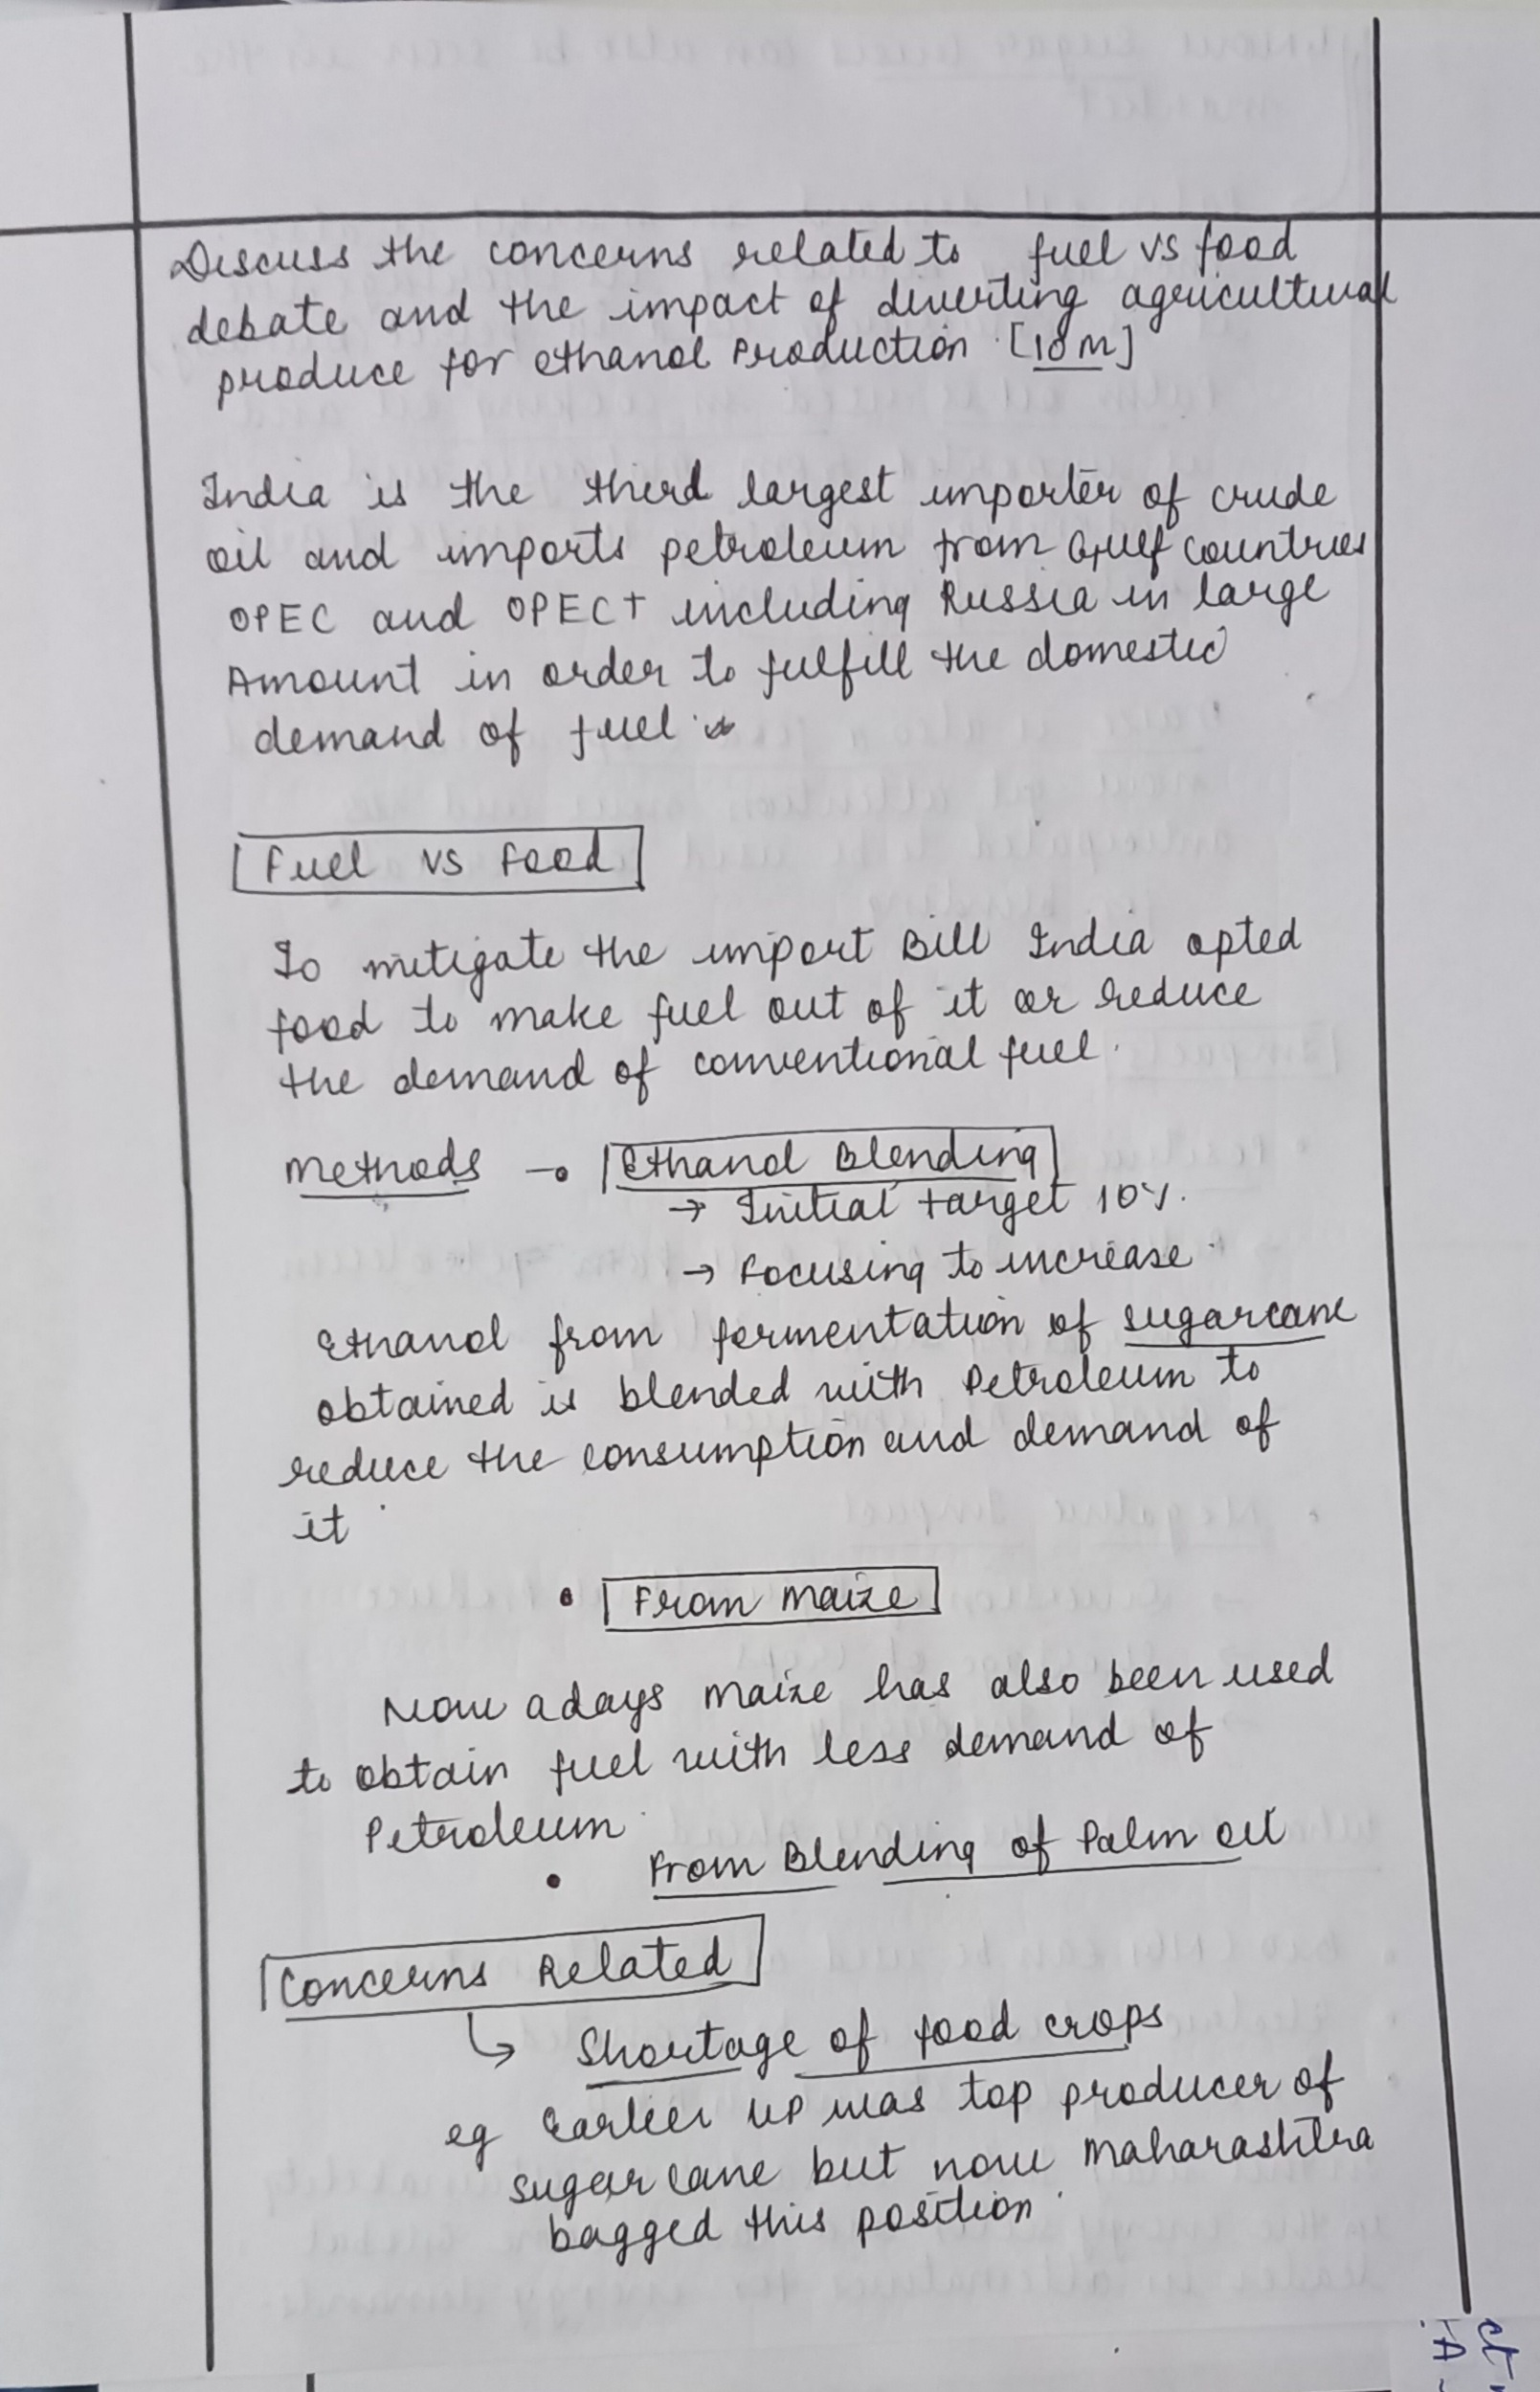 Discuss the concerns related to fuel vs food
debate and the impact of diverting agricultural
produce for ethanol Production. [10 M]
India is the third largest importer of crude
oil and imports petroleum from Gulf countries
OPEC and OPEC+ including Russia in large
Amount in order to fulfill the domestic
demand of fuel.
Fuel vs Food
To mitigate the import Bill India opted
food to make fuel out of it or reduce
the demand of conventional fuel.
Methods → • Ethanol Blending
→ Initial target 10%.
→ Focusing to increase
Ethanol from fermentation of sugarcane
obtained is blended with Petroleum to
reduce the consumption and demand of
it.
• From Maize
Now adays maize has also been used
to obtain fuel with less demand of
Petroleum.
• From Blending of Palm oil
Concerns Related
↳ Shortage of food crops
eg Earlier UP was top producer of
sugarcane but now Maharashtra
bagged this position.